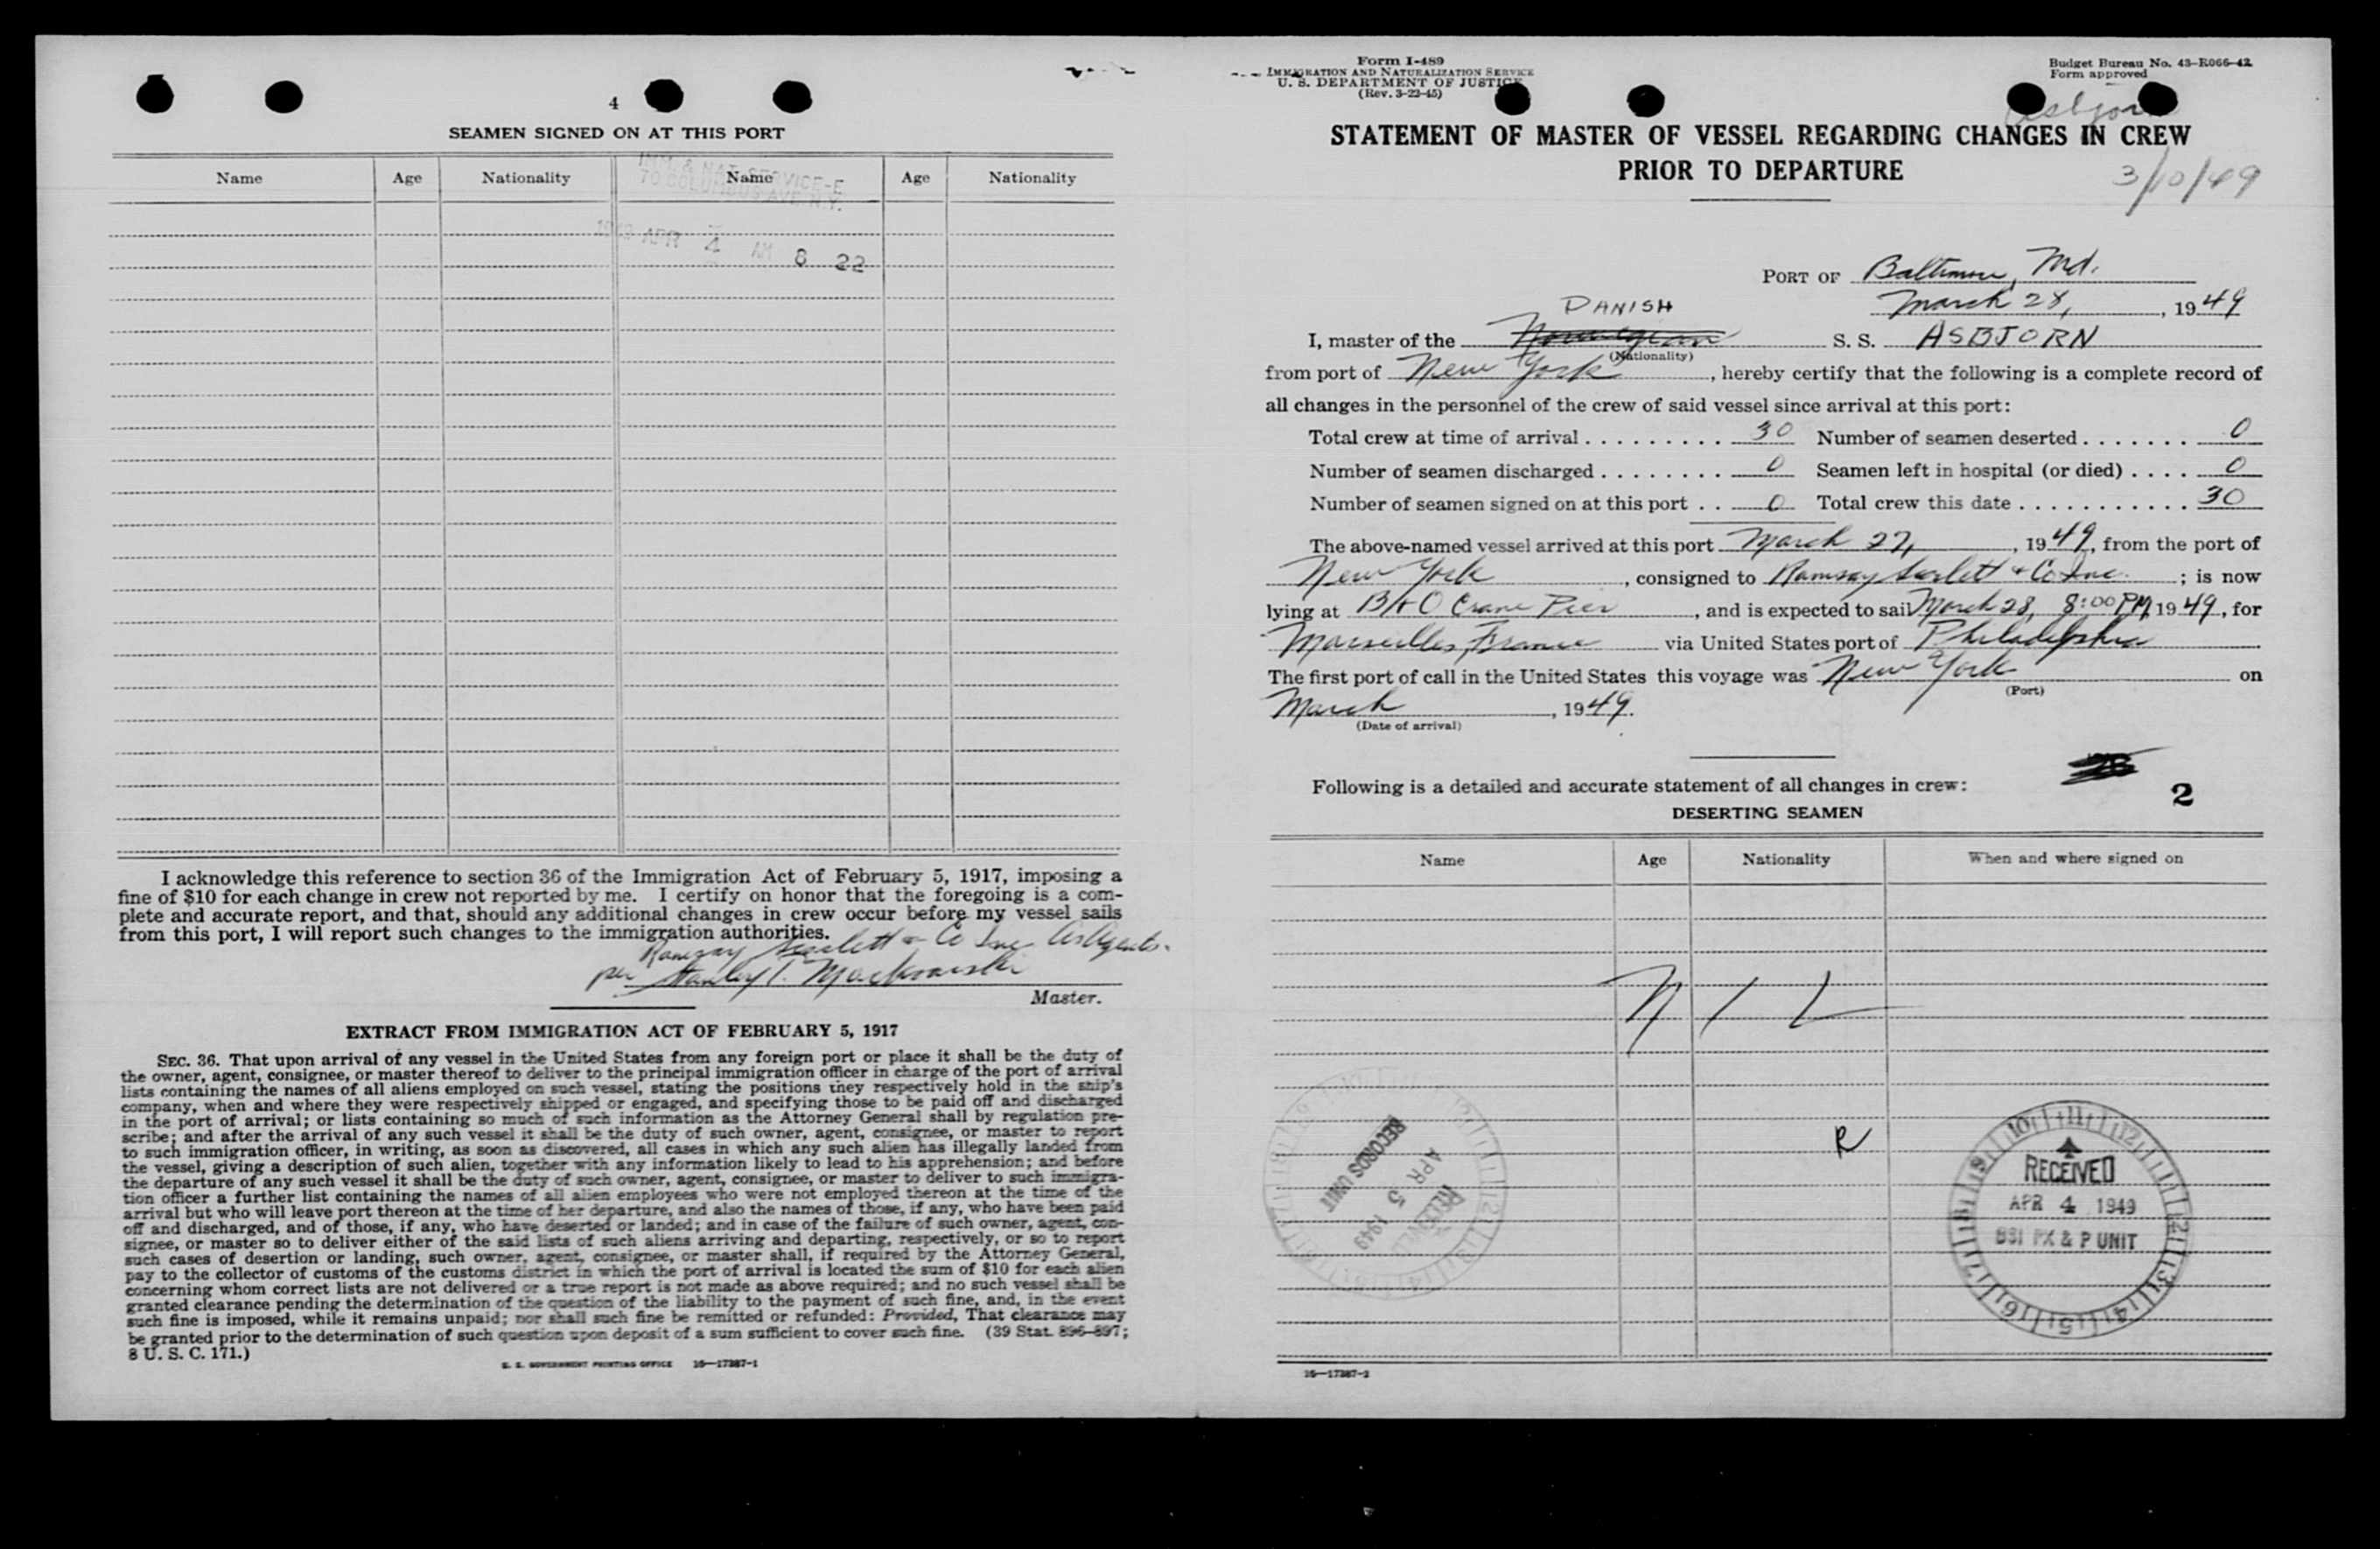 4
SEAMEN SIGNED ON AT THIS PORT
Name Age Nationality Name Age Nationality
IMM. & NAT. SERVICE-E
70 COLUMBUS AVE. N.Y.
1949 APR 4 AM 8 22
I acknowledge this reference to section 36 of the Immigration Act of February 5, 1917, imposing a
fine of $10 for each change in crew not reported by me. I certify on honor that the foregoing is a com-
plete and accurate report, and that, should any additional changes in crew occur before my vessel sails
from this port, I will report such changes to the immigration authorities.
Ramsay Scarlett & Co Inc As Agents.
per Stanley T. Mackowski
Master.
EXTRACT FROM IMMIGRATION ACT OF FEBRUARY 5, 1917
SEC. 36. That upon arrival of any vessel in the United States from any foreign port or place it shall be the duty of
the owner, agent, consignee, or master thereof to deliver to the principal immigration officer in charge of the port of arrival
lists containing the names of all aliens employed on such vessel, stating the positions they respectively hold in the ship's
company, when and where they were respectively shipped or engaged, and specifying those to be paid off and discharged
in the port of arrival; or lists containing so much of such information as the Attorney General shall by regulation pre-
scribe; and after the arrival of any such vessel it shall be the duty of such owner, agent, consignee, or master to report
to such immigration officer, in writing, as soon as discovered, all cases in which any such alien has illegally landed from
the vessel, giving a description of such alien, together with any information likely to lead to his apprehension; and before
the departure of any such vessel it shall be the duty of such owner, agent, consignee, or master to deliver to such immigra-
tion officer a further list containing the names of all alien employees who were not employed thereon at the time of the
arrival but who will leave port thereon at the time of her departure, and also the names of those, if any, who have been paid
off and discharged, and of those, if any, who have deserted or landed; and in case of the failure of such owner, agent, con-
signee, or master so to deliver either of the said lists of such aliens arriving and departing, respectively, or so to report
such cases of desertion or landing, such owner, agent, consignee, or master shall, if required by the Attorney General,
pay to the collector of customs of the customs district in which the port of arrival is located the sum of $10 for each alien
concerning whom correct lists are not delivered or a true report is not made as above required; and no such vessel shall be
granted clearance pending the determination of the question of the liability to the payment of such fine, and, in the event
such fine is imposed, while it remains unpaid; nor shall such fine be remitted or refunded: Provided, That clearance may
be granted prior to the determination of such question upon deposit of a sum sufficient to cover such fine. (39 Stat. 896-897;
8 U. S. C. 171.)
U. S. GOVERNMENT PRINTING OFFICE 16—17387-1
Form I-489
IMMIGRATION AND NATURALIZATION SERVICE
U. S. DEPARTMENT OF JUSTICE
(Rev. 3-22-45)
Budget Bureau No. 43-R066-42
Form approved
Asbjorn
STATEMENT OF MASTER OF VESSEL REGARDING CHANGES IN CREW
PRIOR TO DEPARTURE
3/10/49
PORT OF Baltimore, Md.
March 28, , 1949
DANISH
I, master of the Norwegian S. S. ASBJORN
(Nationality)
from port of New York , hereby certify that the following is a complete record of
all changes in the personnel of the crew of said vessel since arrival at this port:
Total crew at time of arrival . . . . . . . . . . 30 Number of seamen deserted . . . . . . . 0
Number of seamen discharged . . . . . . . . 0 Seamen left in hospital (or died) . . . . 0
Number of seamen signed on at this port . . 0 Total crew this date . . . . . . . . . . . . 30
The above-named vessel arrived at this port March 27, , 1949, from the port of
New York , consigned to Ramsay Scarlett & Co Inc. ; is now
lying at B&O Crane Pier , and is expected to sail March 28, 8:00 PM, 1949, for
Marseilles, France via United States port of Philadelphia
The first port of call in the United States this voyage was New York on
(Port)
March , 1949.
(Date of arrival)
Following is a detailed and accurate statement of all changes in crew:
2
DESERTING SEAMEN
Name Age Nationality When and where signed on
NIL
R
RECORDS UNIT
APR 5 1949
RECEIVED
RECEIVED
APR 4 1949
BSI PX & P UNIT
16—17387-2